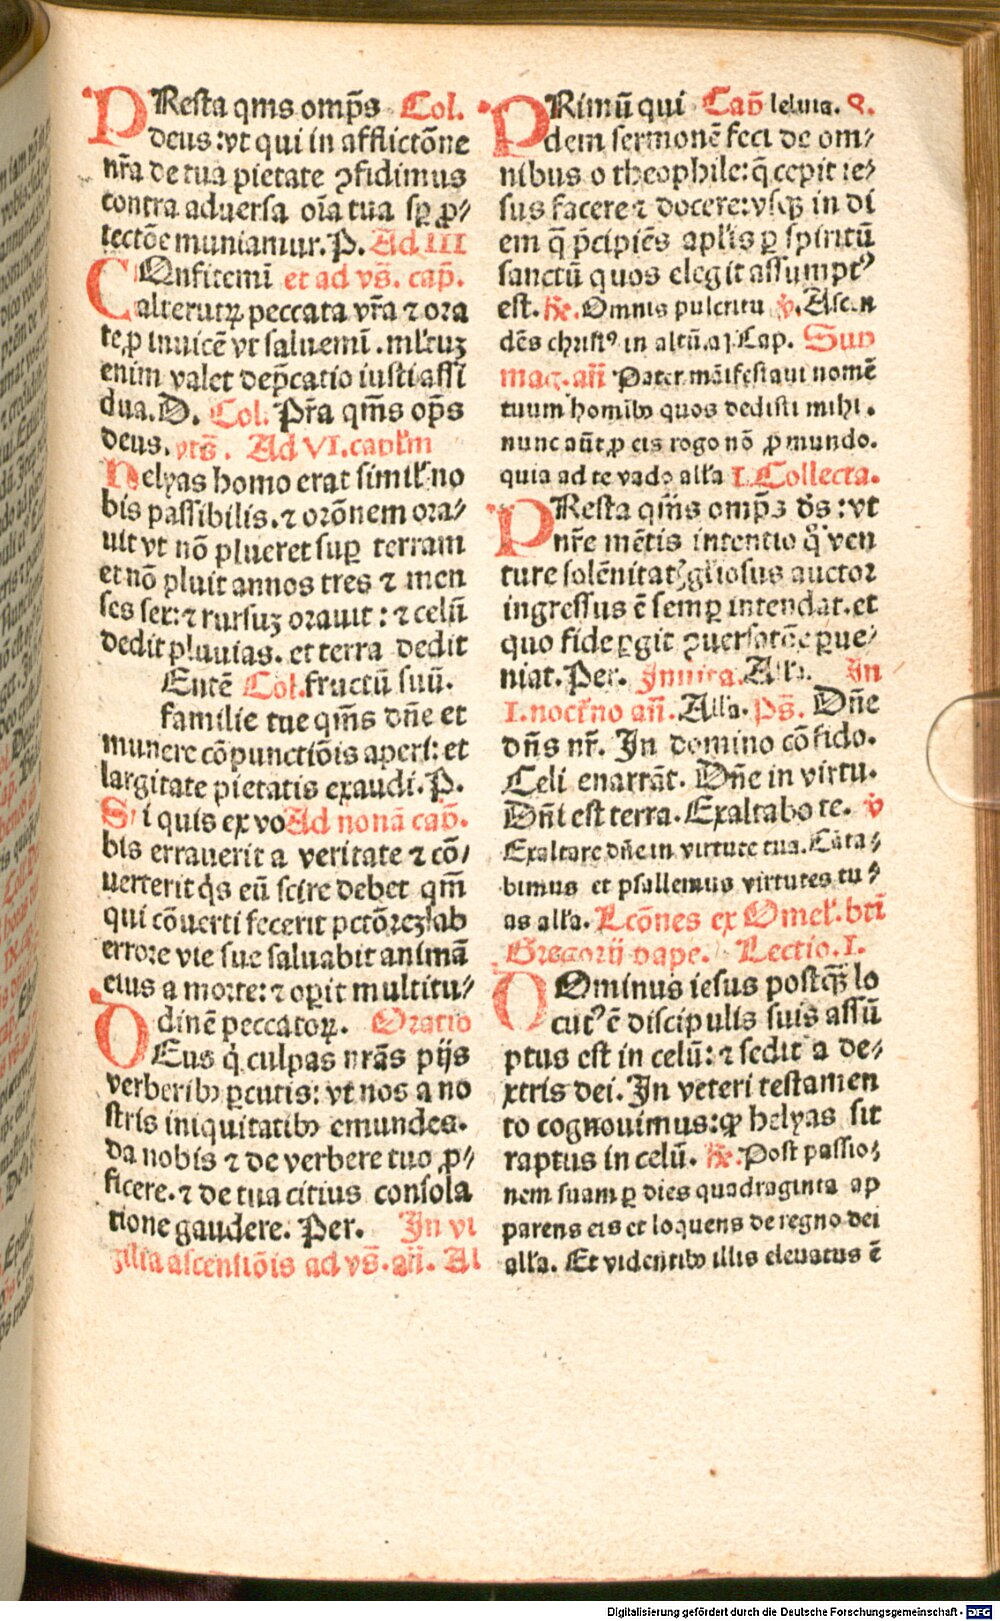 PResta qm̄s omp̄s Col.
deus: vt qui in afflictōne
nr̄a de tua pietate ꝯfidimus
contra aduersa oīa tua sꝑ ꝓ⸗
tectōe muniamur. P. Ad III
COnfitemī et ad vs̄. cap̄.
alterutꝝ peccata vr̄a ⁊ ora
te ꝓ inuicē vt saluemī. ml̄tuꝫ
enim valet dep̄catio iusti assi
dua. D. Col. Pr̄a qm̄s op̄s
deus. vts̄. Ad VI. capl̄m
Helyas homo erat simil̄ no
bis passibilis. ⁊ orōnem ora⸗
uit vt nō plueret suꝑ terram
et nō pluit annos tres ⁊ men
ses sex: ⁊ rursuꝫ orauit: ⁊ celū
dedit pluuias. et terra dedit
Entē Col. fructū suū.
familie tue qm̄s dn̄e et
munere cōpunctiōis aperi: et
largitate pietatis exaudi. P.
Si quis ex vo Ad nonā cap̄.
bis errauerit a veritate ⁊ cō⸗
uerterit q̇s eū scire debet qm̄
qui cōuerti fecerit pctōrēꝫ ab
errore vie sue saluabit animā
eius a morte: ⁊ oꝑit multitu⸗
dinē peccatoꝝ. Oratio
DEus q̇ culpas nrās pijs
verberibꝰ ꝑcutis: vt nos a no
stris iniquitatibꝰ emundes.
da nobis ⁊ de verbere tuo ꝓ⸗
ficere. ⁊ de tua citius consola
tione gaudere. Per. In vi
gilia ascensiōis ad vs̄. añ. Al
PRimū qui Cap̄ leluia. ꝶ.
dem sermonē feci de om⸗
nibus o theophile: q̄ cepit ie⸗
sus facere ⁊ docere: vsqꝫ in di
em q̄ p̄cipiēs apl̄is ꝑ spiritū
sanctū quos elegit assumptꝰ
est. ℟. Omnis pulcritu ℣. Ascen
dēs christꝰ in altū. a Cap. Sup
mag. añ Pater māifestaui nomē
tuum homībꝰ quos dedisti mihi.
nunc aūt ꝓ eis rogo nō ꝓ mundo.
quia ad te vado all̄a I. Collecta.
PResta qm̄s omp̄ꝫ ds̄: vt
nr̄e mētis intentio q̊ ven
ture solēnitatꝭ gl̄iosus auctor
ingressus ē semꝑ intendat. et
quo fide ꝑgit ꝯuersatōe ꝑue⸗
niat. Per. Inuita. All̄a. In
I. noct̄no añ. All̄a. Ps̄. Dn̄e
dn̄s nr̄. In domino cōfido.
Celi enarrāt. Dn̄e in virtu.
Dn̄i est terra. Exaltabo te. ℣
Exaltare dn̄e in virtute tua. Cāta⸗
bimus et psallemus virtutes tu⸗
as all̄a. Lcōnes ex Omel̄. btī
Gregorij pape. Lectio. I.
DOminus iesus postqꝫ lo
cutꝰ ē discipulis suis assū
ptus est in celū: ⁊ sedit a de⸗
xtris dei. In veteri testamen
to cognouimus: ꝙ helyas sit
raptus in celū. ℟. Post passio⸗
nem suam ꝑ dies quadraginta ap
parens eis et loquens de regno dei
all̄a. Et videntibꝰ illis eleuatus ē
Digitalisierung gefördert durch die Deutsche Forschungsgemeinschaft - DFG